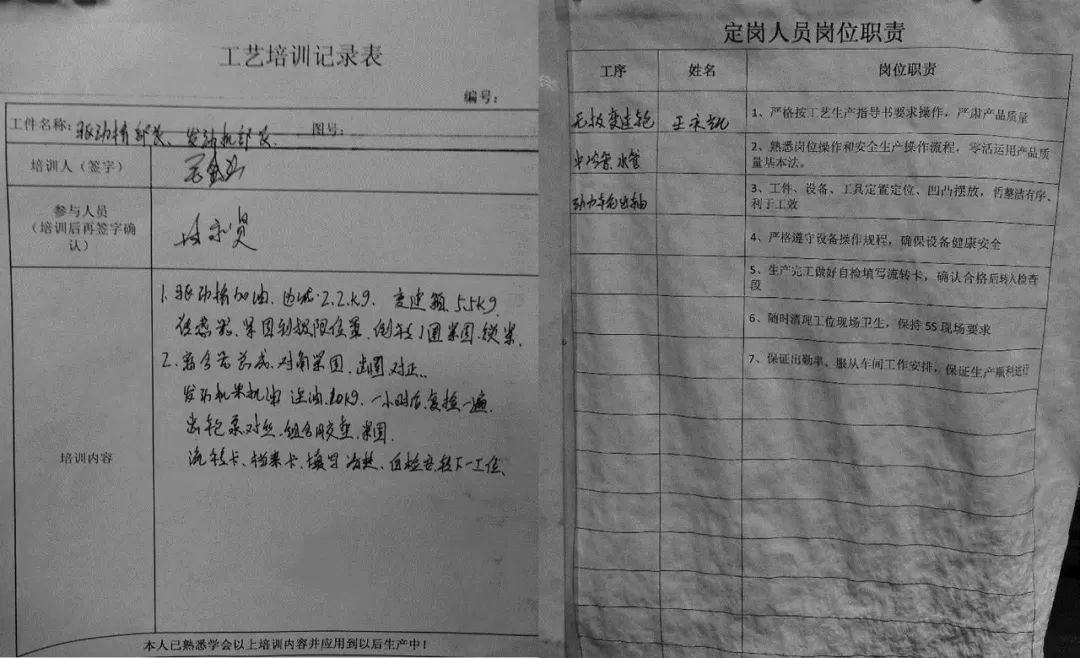 工艺培训记录表
编号：
工件名称：驱动桥部装、发动机部装
图号：
培训人（签字）
参与人员
（培训后再签字确
认）
培训内容
1. 驱动桥加油、边减:2.2kg、变速箱5.5kg
2. 离合器总成、对角紧固、齿圈对正、
发动机来机油 注油 10kg、一小时后复检一遍、
流转卡、档案卡、填写清楚、自检后转下一工位、
本人已熟悉学会以上培训内容并应用到以后生产中！
定岗人员岗位职责
工序 姓名 岗位职责
1、严格按工艺生产指导书要求操作，严肃产品质量
中冷管 水管
2、熟悉岗位操作和安全生产操作流程，零活运用产品质
量基本法。
动力输出轴
3、工件、设备、工具定置定位、凹凸摆放，哲整洁有序、
利于工效
4、严格遵守设备操作规程，确保设备健康安全
5、生产完工做好自检填写流转卡，确认合格后转入检查
段
6、随时清理工位现场卫生，保持5S现场要求
7、保证出勤率、服从车间工作安排，保证生产顺利进行